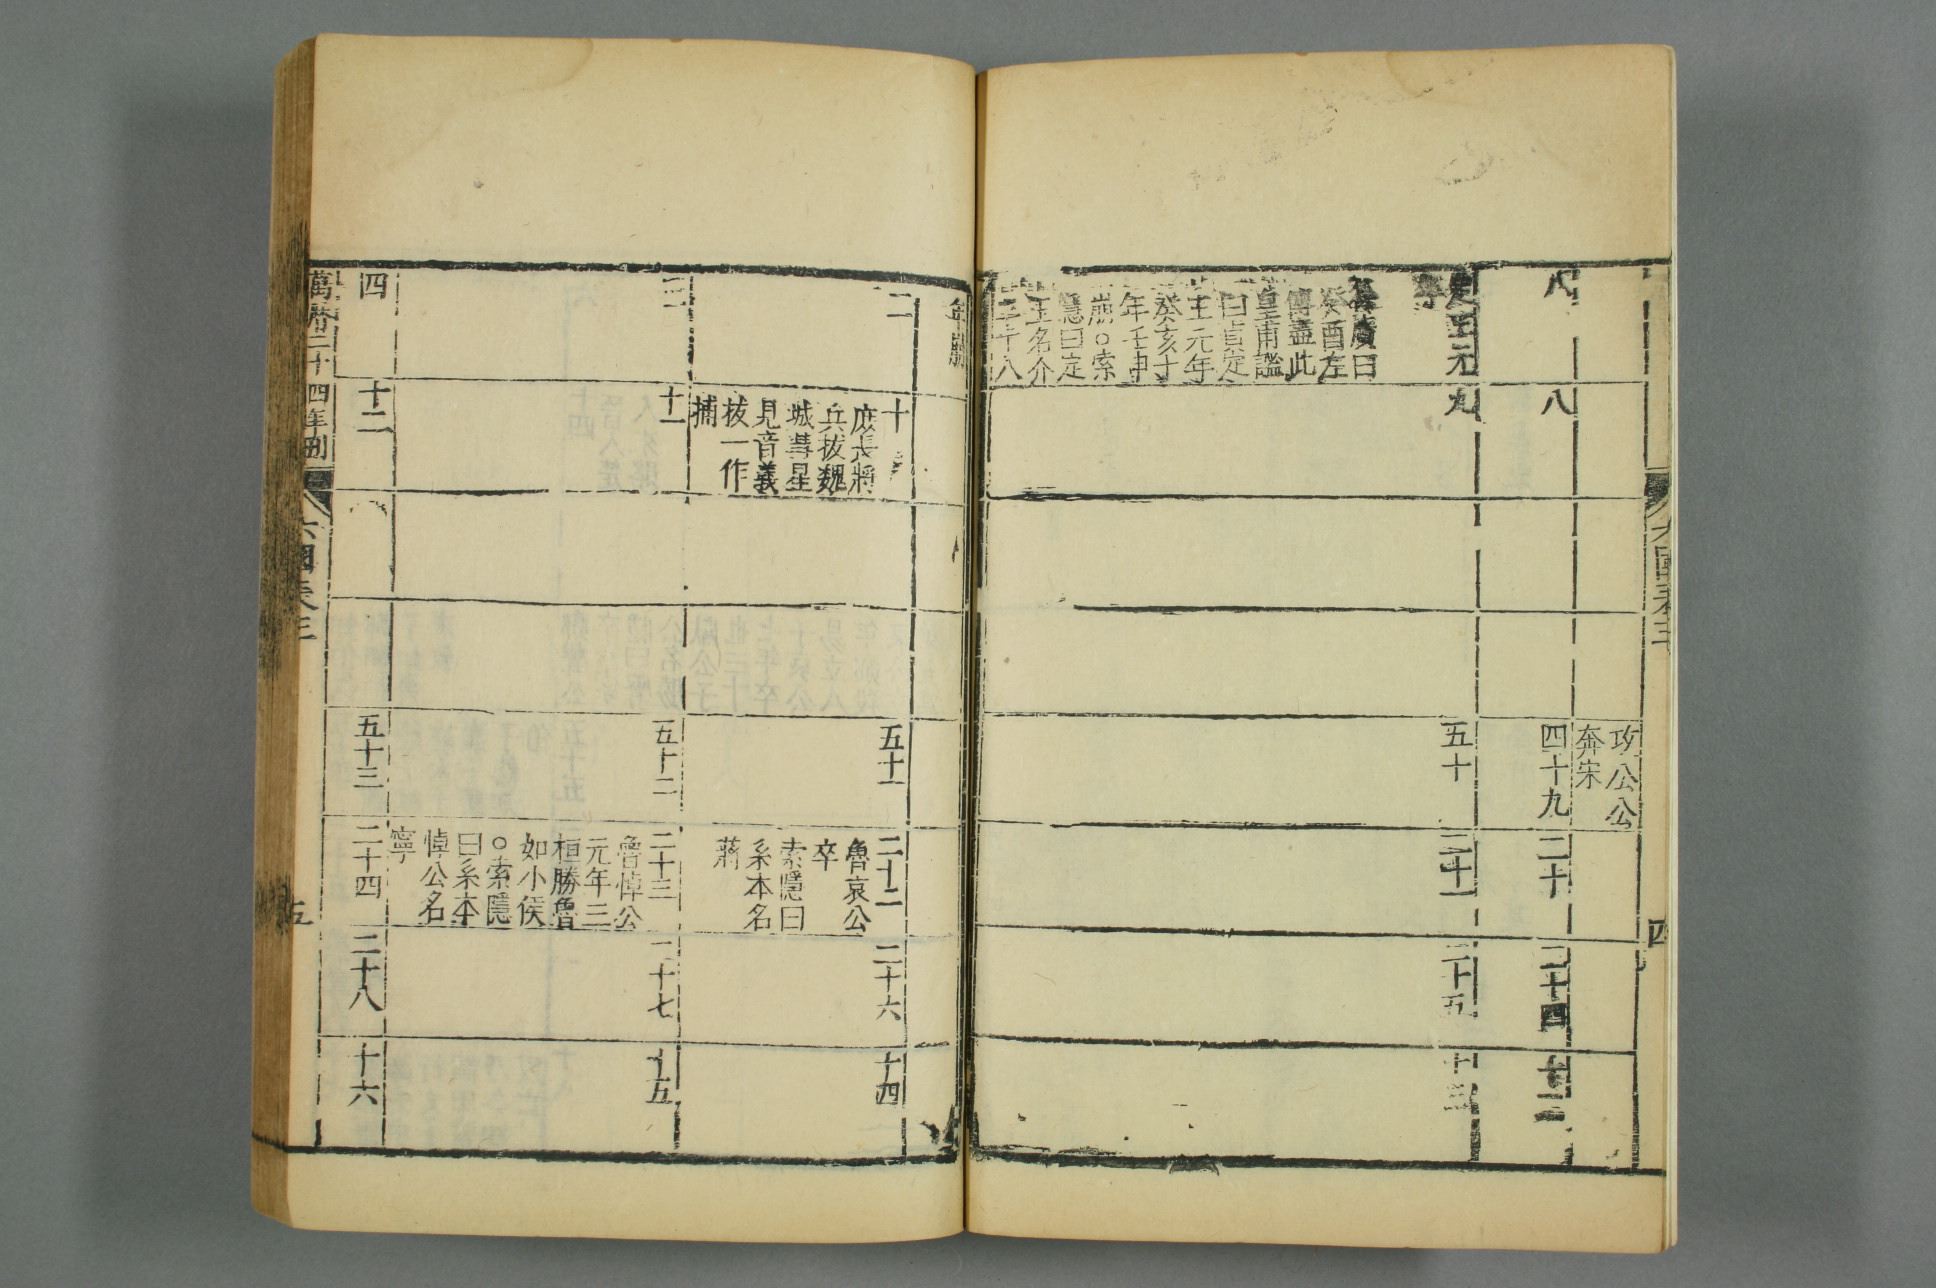 六國表三
四
攻公公
奔宋
八
八
四十九
二十
二十四
十二
定王元
九
五十
二十一
二十五
十三
徐廣曰
癸酉左
傳盡此
皇甫謐
曰貞定
王元年
癸亥十
年壬申
崩○索
隱曰定
王名介
二十八
年崩
二
十
庶長將
兵拔魏
城彗星
見音義
拔一作
捕
五十一
二十二
魯哀公
卒
索隱曰
系本名
蔣
二十六
十四
三
十一
五十二
二十三
魯悼公
元年三
桓勝魯
如小侯
○索隱
曰系本
悼公名
寧
二十七
十五
四
十二
五十三
二十四
二十八
十六
萬曆二十四年刊
六國表三
五